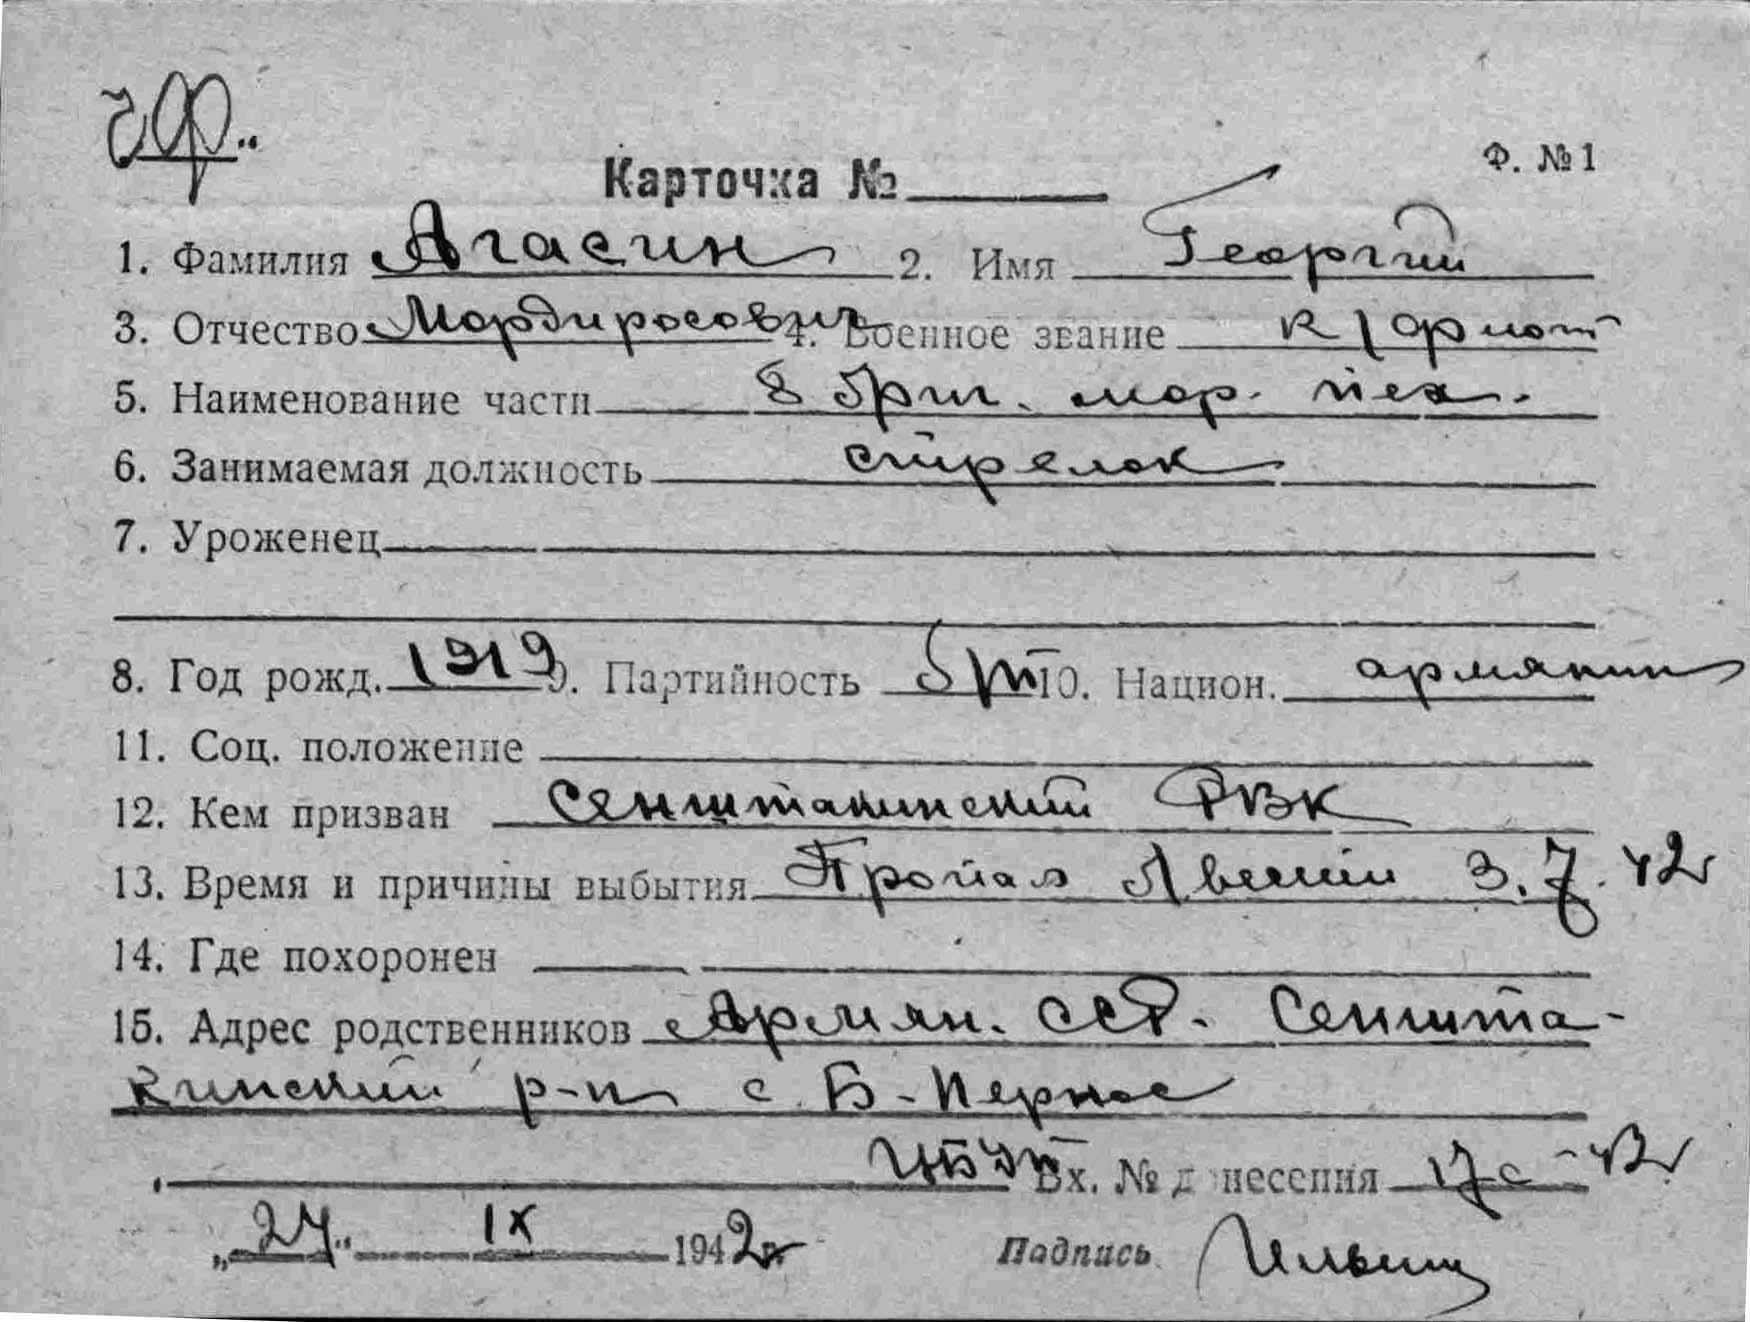 Ф. № 1
Карточка №
1. Фамилия Агасин 2. Имя Георгий
3. Отчество Мордиросович 4. Военное звание к/флот
5. Наименование части 8 бриг. мор. пех.
6. Занимаемая должность стрелок
7. Уроженец
8. Год рожд. 1919 9. Партийность б/п 10. Национ. армянин
11. Соц. положение
12. Кем призван Сенштакинский РВК
13. Время и причины выбытия Пропал б/вести 3.7.42
14. Где похоронен
15. Адрес родственников Армян. ССР. Сеншта-
кинский р-н с. Б-Пернос
Вх. № донесения 17с-42
„24“ IX 1942г
Подпись Ильин